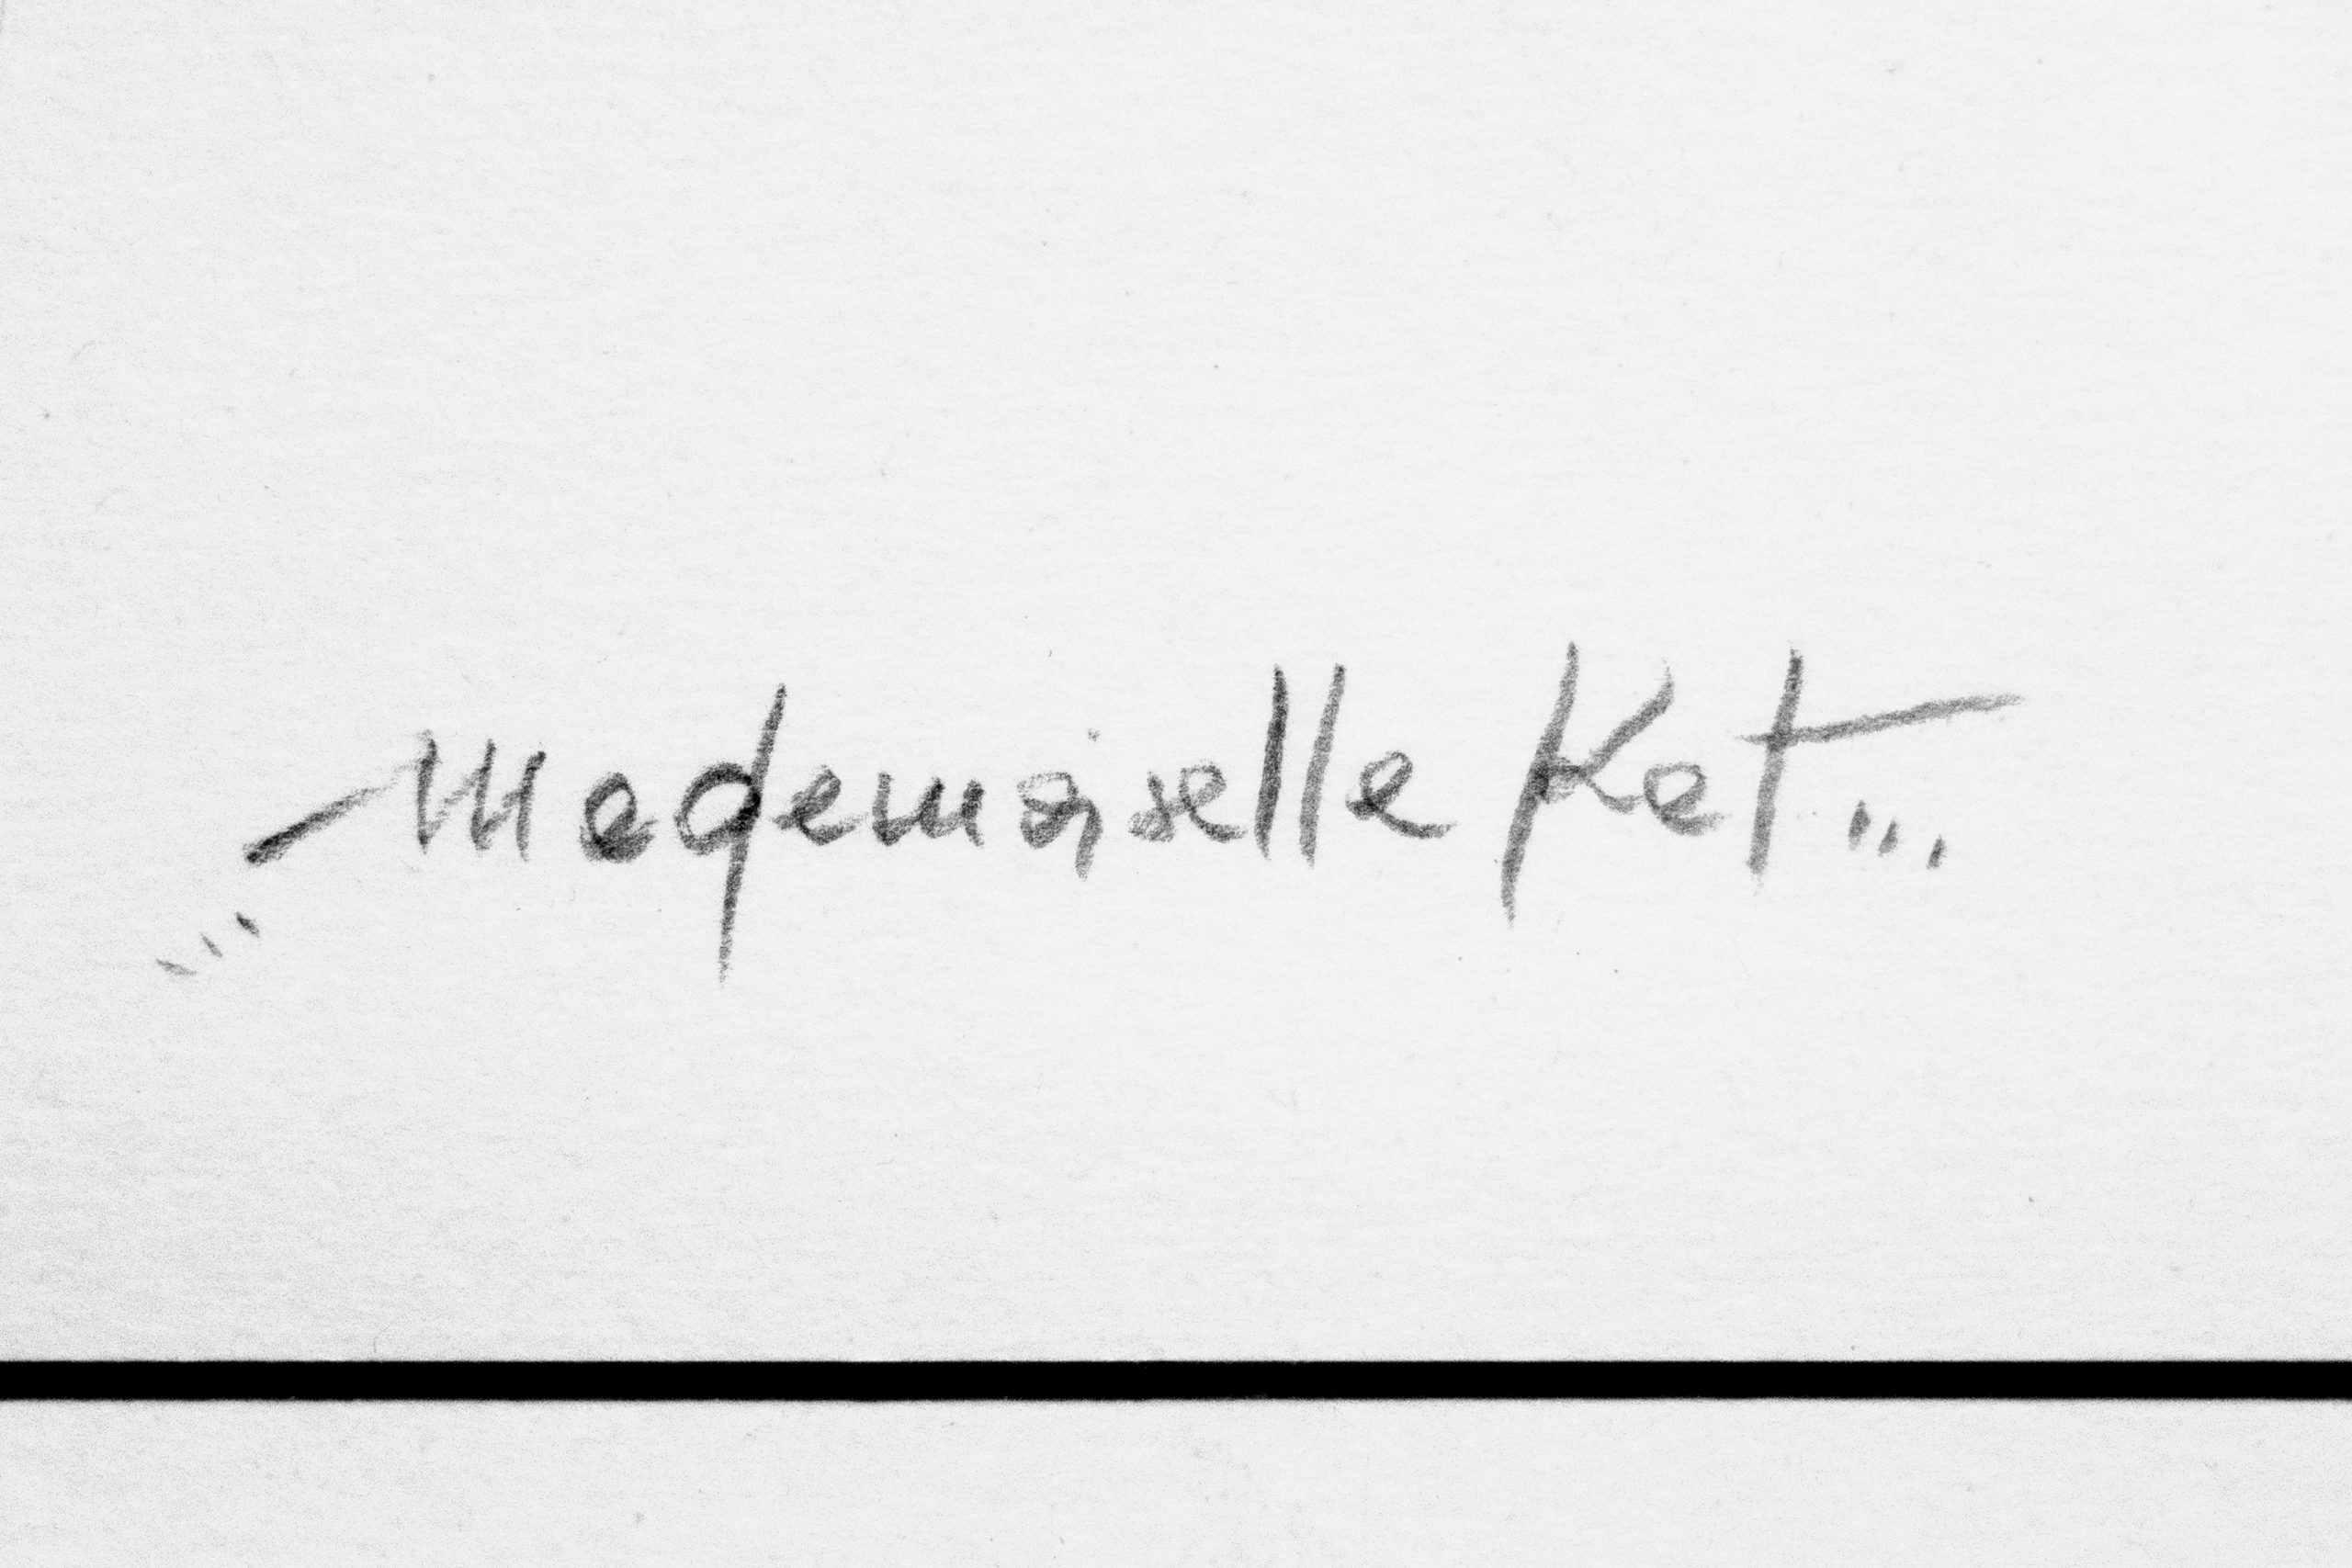 Mademoiselle Kat...